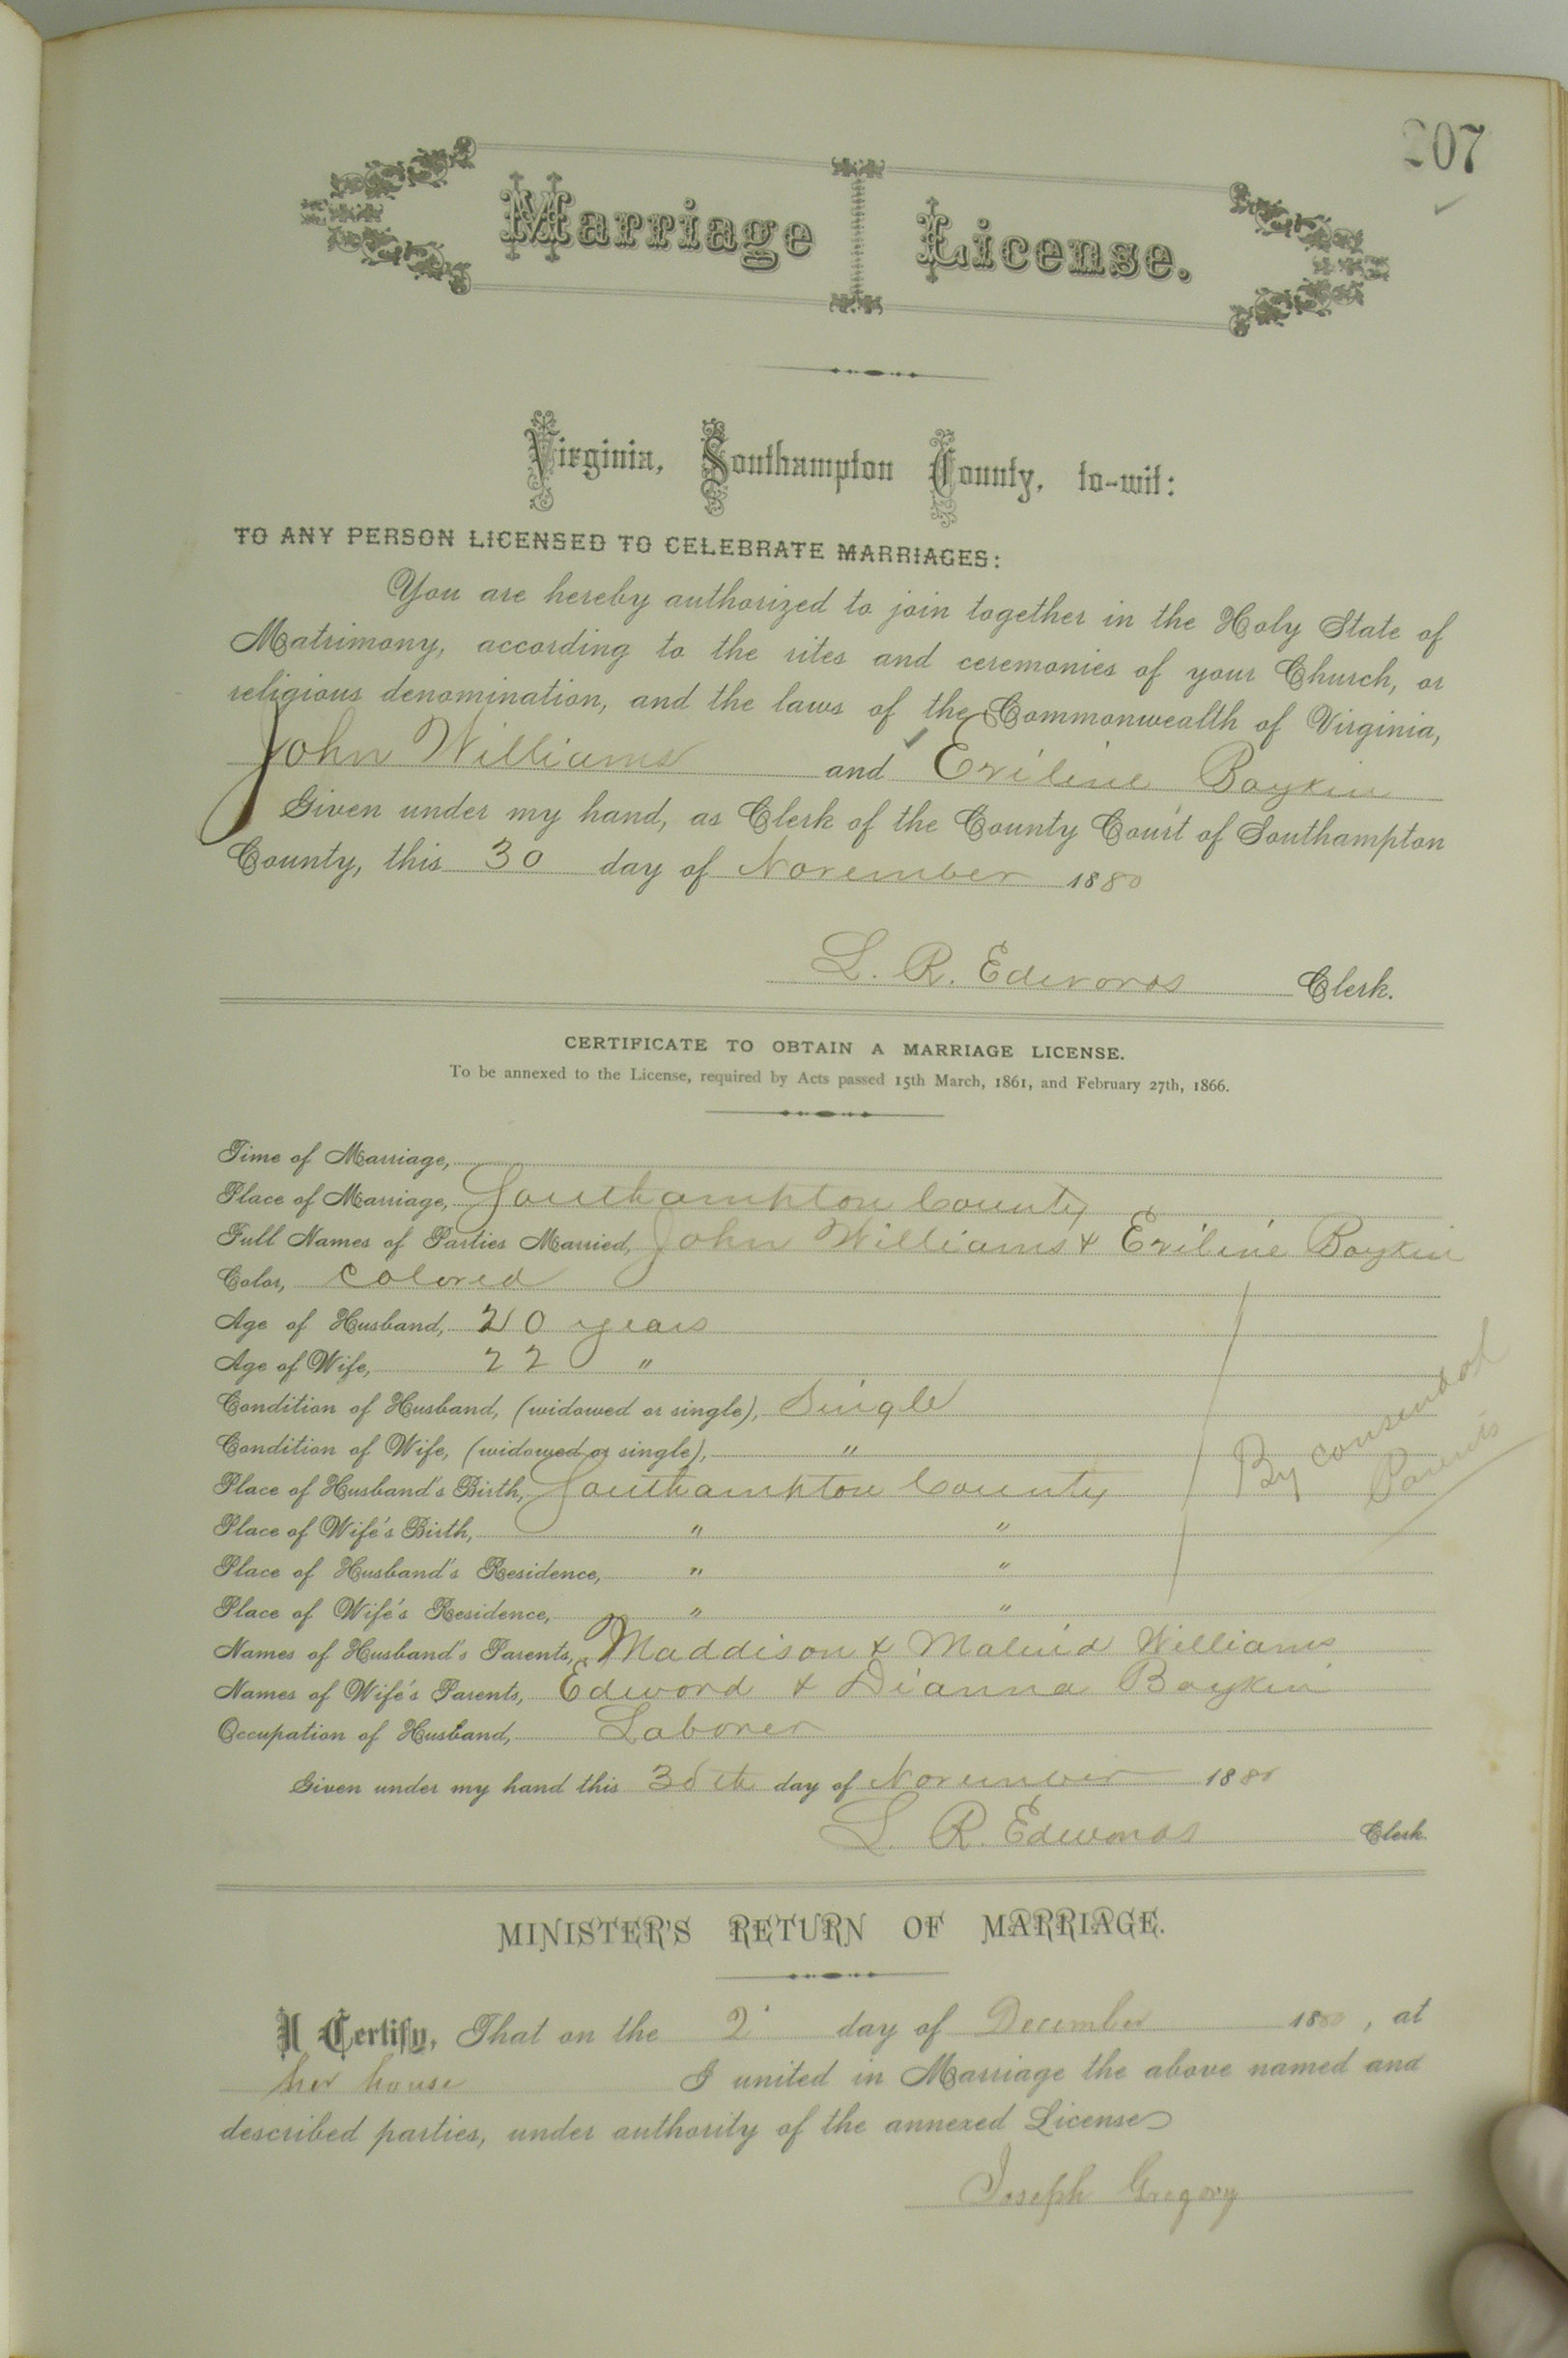 207
Marriage License.
Virginia, Southampton County, to-wit:
TO ANY PERSON LICENSED TO CELEBRATE MARRIAGES:
You are hereby authorized to join together in the Holy State of
Matrimony, according to the rites and ceremonies of your Church, or
religious denomination, and the laws of the Commonwealth of Virginia,
John Williams and Exiline Boykin
Given under my hand, as Clerk of the County Court of Southampton
County, this 30 day of November 1880
L. R. Edwards Clerk.
CERTIFICATE TO OBTAIN A MARRIAGE LICENSE.
To be annexed to the License, required by Acts passed 15th March, 1861, and February 27th, 1866.
Time of Marriage,
Place of Marriage, Southampton County
Full Names of Parties Married, John Williams & Exiline Boykin
Color, Colored
Age of Husband, 20 years
Age of Wife, 22 "
Condition of Husband, (widowed or single), Single
Condition of Wife, (widowed or single), "
Place of Husband's Birth, Southampton County
Place of Wife's Birth, " "
Place of Husband's Residence, " "
Place of Wife's Residence, " "
By consent of
Parents
Names of Husband's Parents, Maddison & Malind Williams
Names of Wife's Parents, Edward & Dianna Boykin
Occupation of Husband, Laborer
Given under my hand this 30th day of November 1880
L. R. Edwards Clerk.
MINISTER'S RETURN OF MARRIAGE.
I Certify, That on the 2 day of December 1880, at
her house I united in Marriage the above named and
described parties, under authority of the annexed License
Joseph Gregory